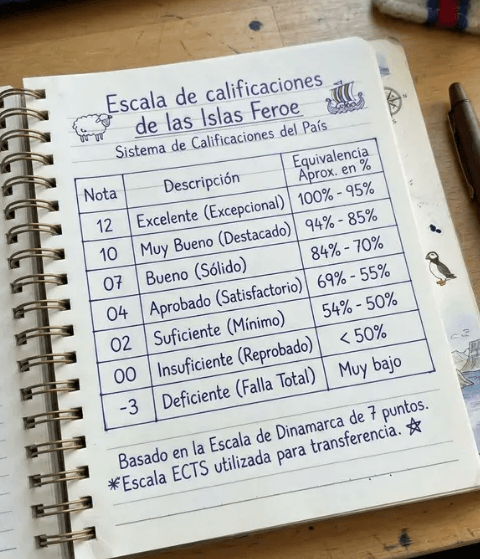 Escala de calificaciones
de las Islas Feroe
Sistema de Calificaciones del País
Nota Descripción Equivalencia Aprox. en %
12 Excelente (Excepcional) 100% - 95%
10 Muy Bueno (Destacado) 94% - 85%
07 Bueno (Sólido) 84% - 70%
04 Aprobado (Satisfactorio) 69% - 55%
02 Suficiente (Mínimo) 54% - 50%
00 Insuficiente (Reprobado) < 50%
-3 Deficiente (Falla Total) Muy bajo
Basado en la Escala de Dinamarca de 7 puntos.
*Escala ECTS utilizada para transferencia. ☆